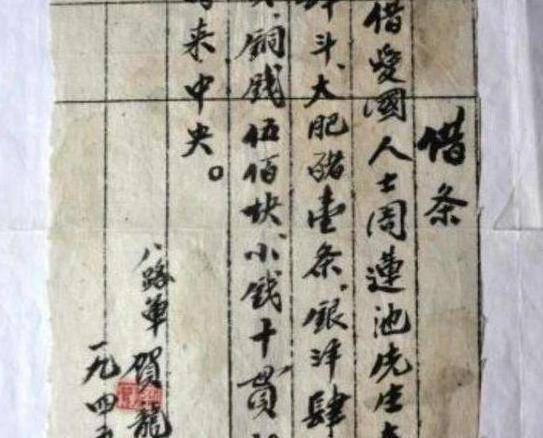 借条
借爱國人士周蓮池先生
斗、大肥豬壹条。銀洋肆
銅錢伍佰块、小錢十貫
来中央。
八路軍 賀龍
一九四